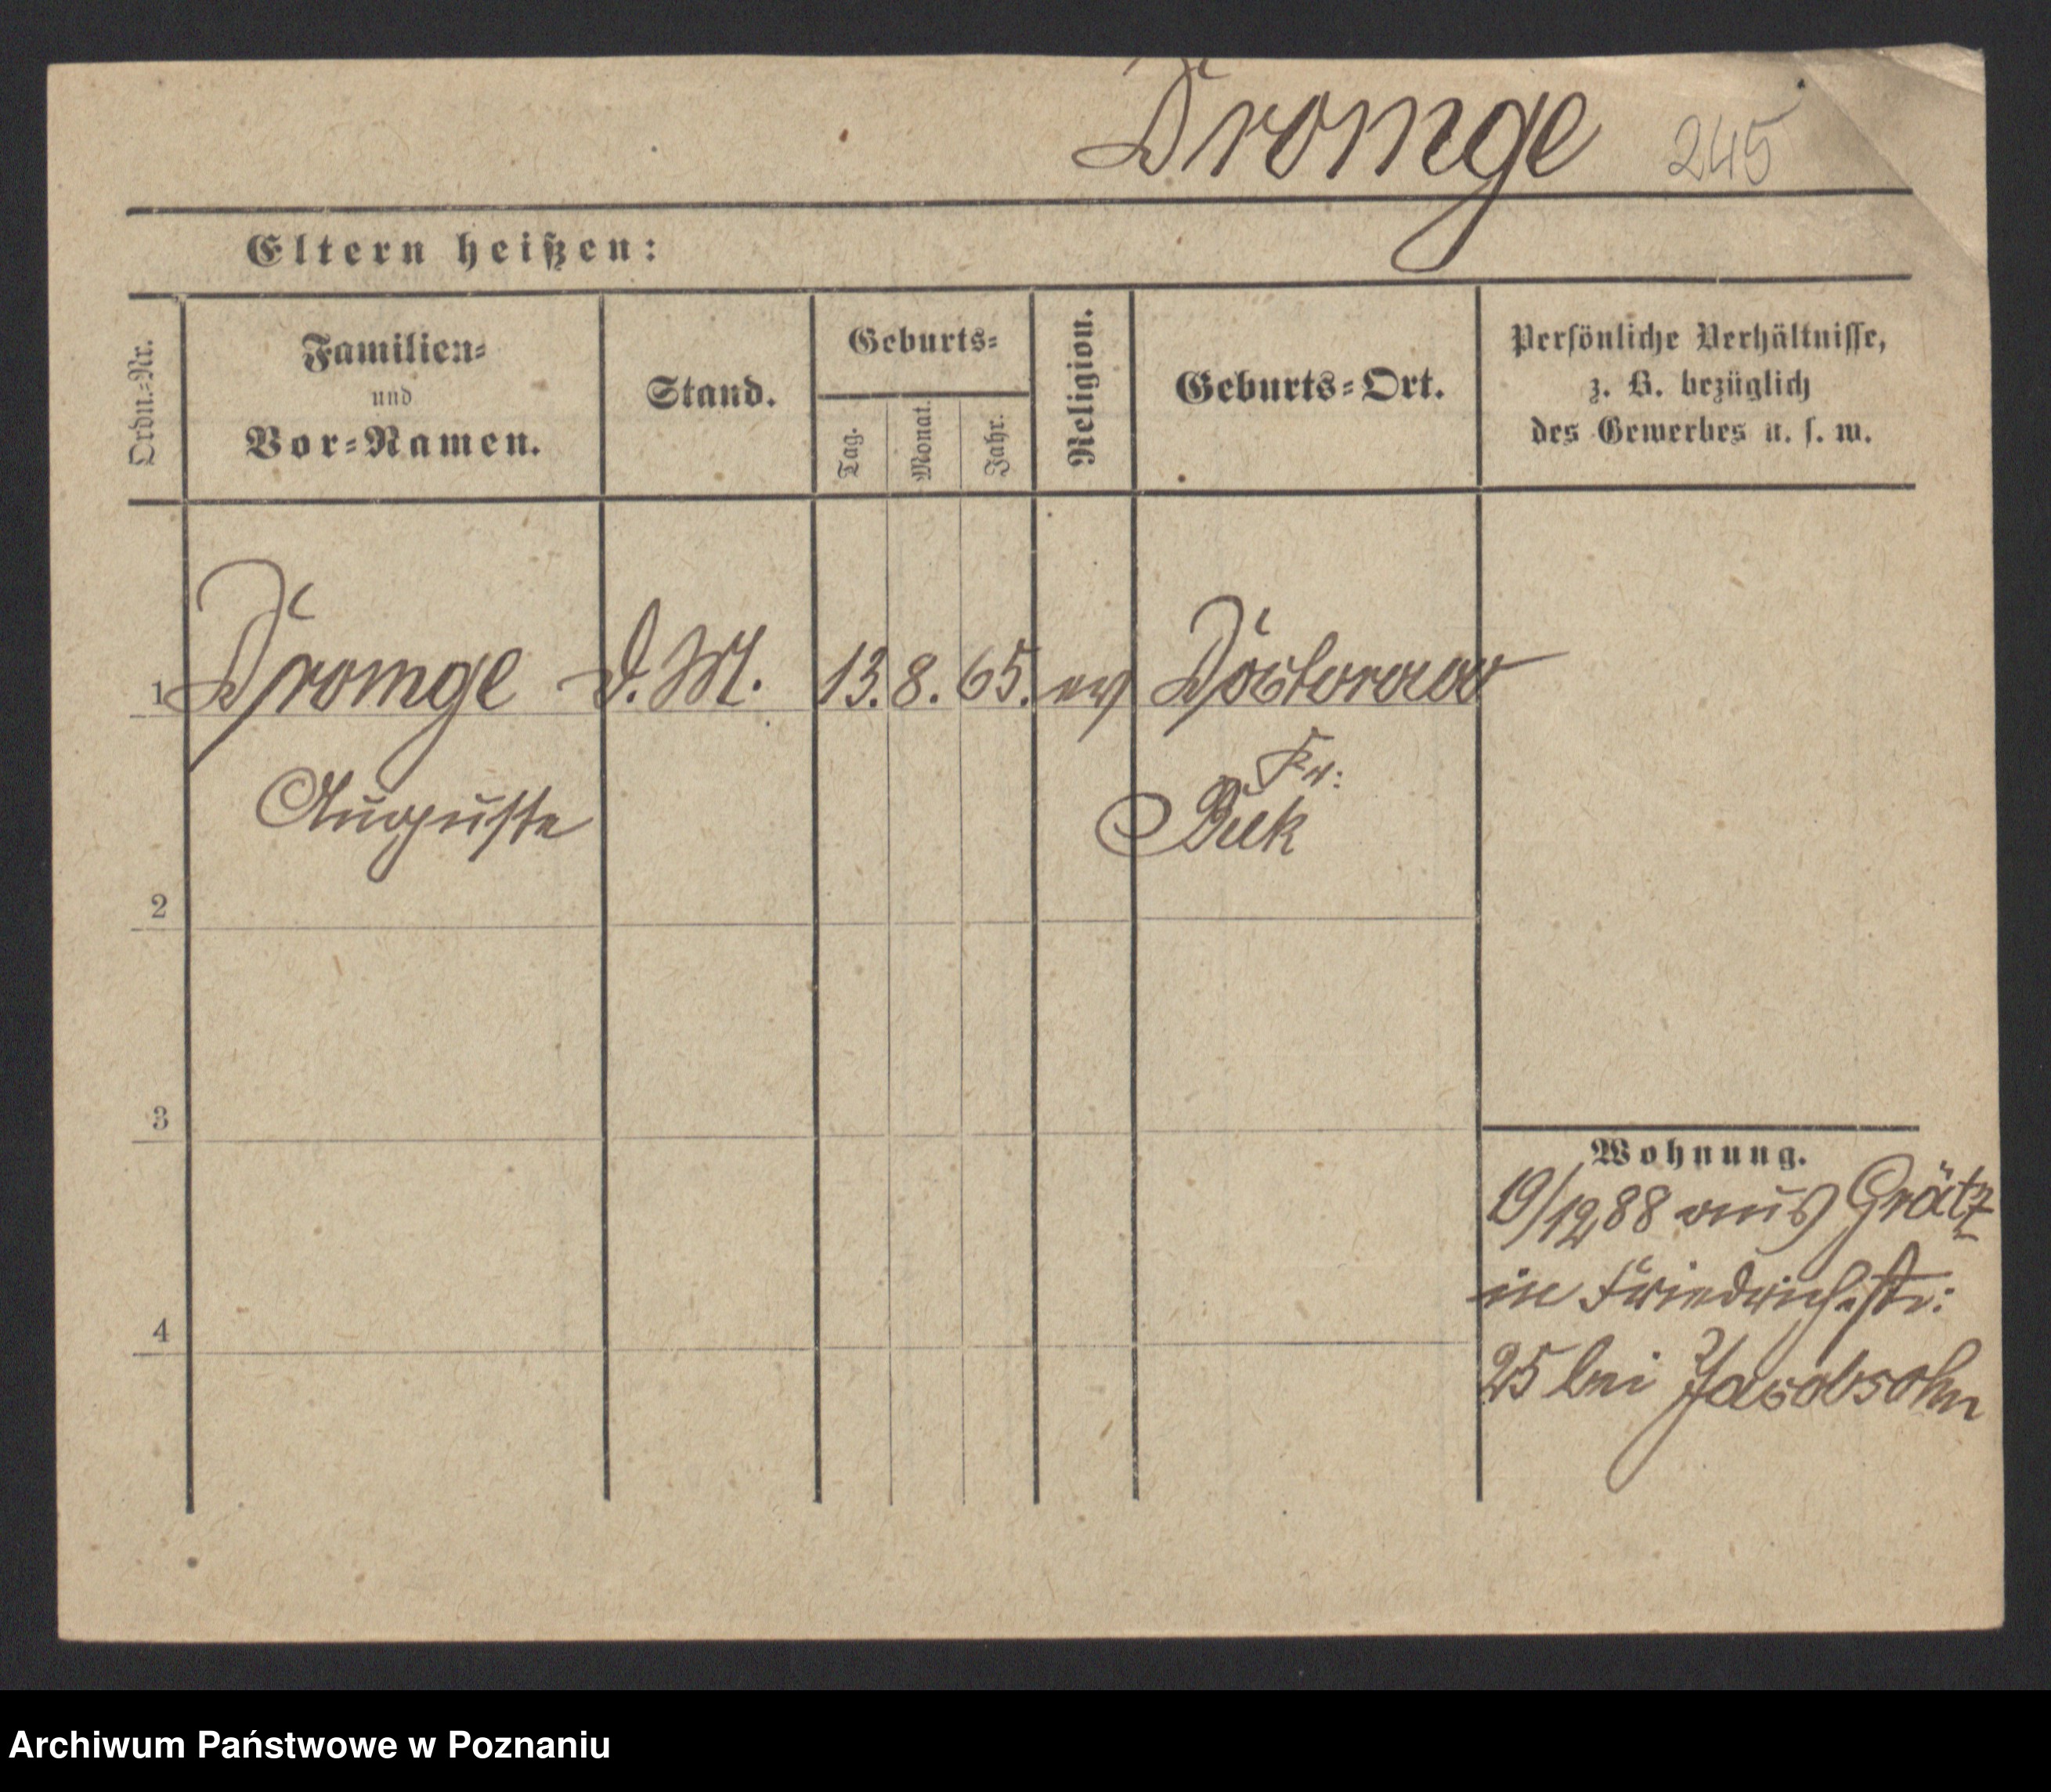 Dromge 245
Eltern heißen:
Ordn.=Nr.
Familien=
und
Vor=Namen.
Stand.
Geburts=
Tag.
Monat.
Jahr.
Religion.
Geburts=Ort.
Persönliche Verhältnisse,
z. B. bezüglich
des Gewerbes u. s. w.
1 Dromge d. M. 13. 8. 65. ev
Auguste
Kr:
Buk
2
3
4
Wohnung.
19/12 88 aus Grätz
in Friedrichstr:
25 bei Jacobsohn
Archiwum Państwowe w Poznaniu